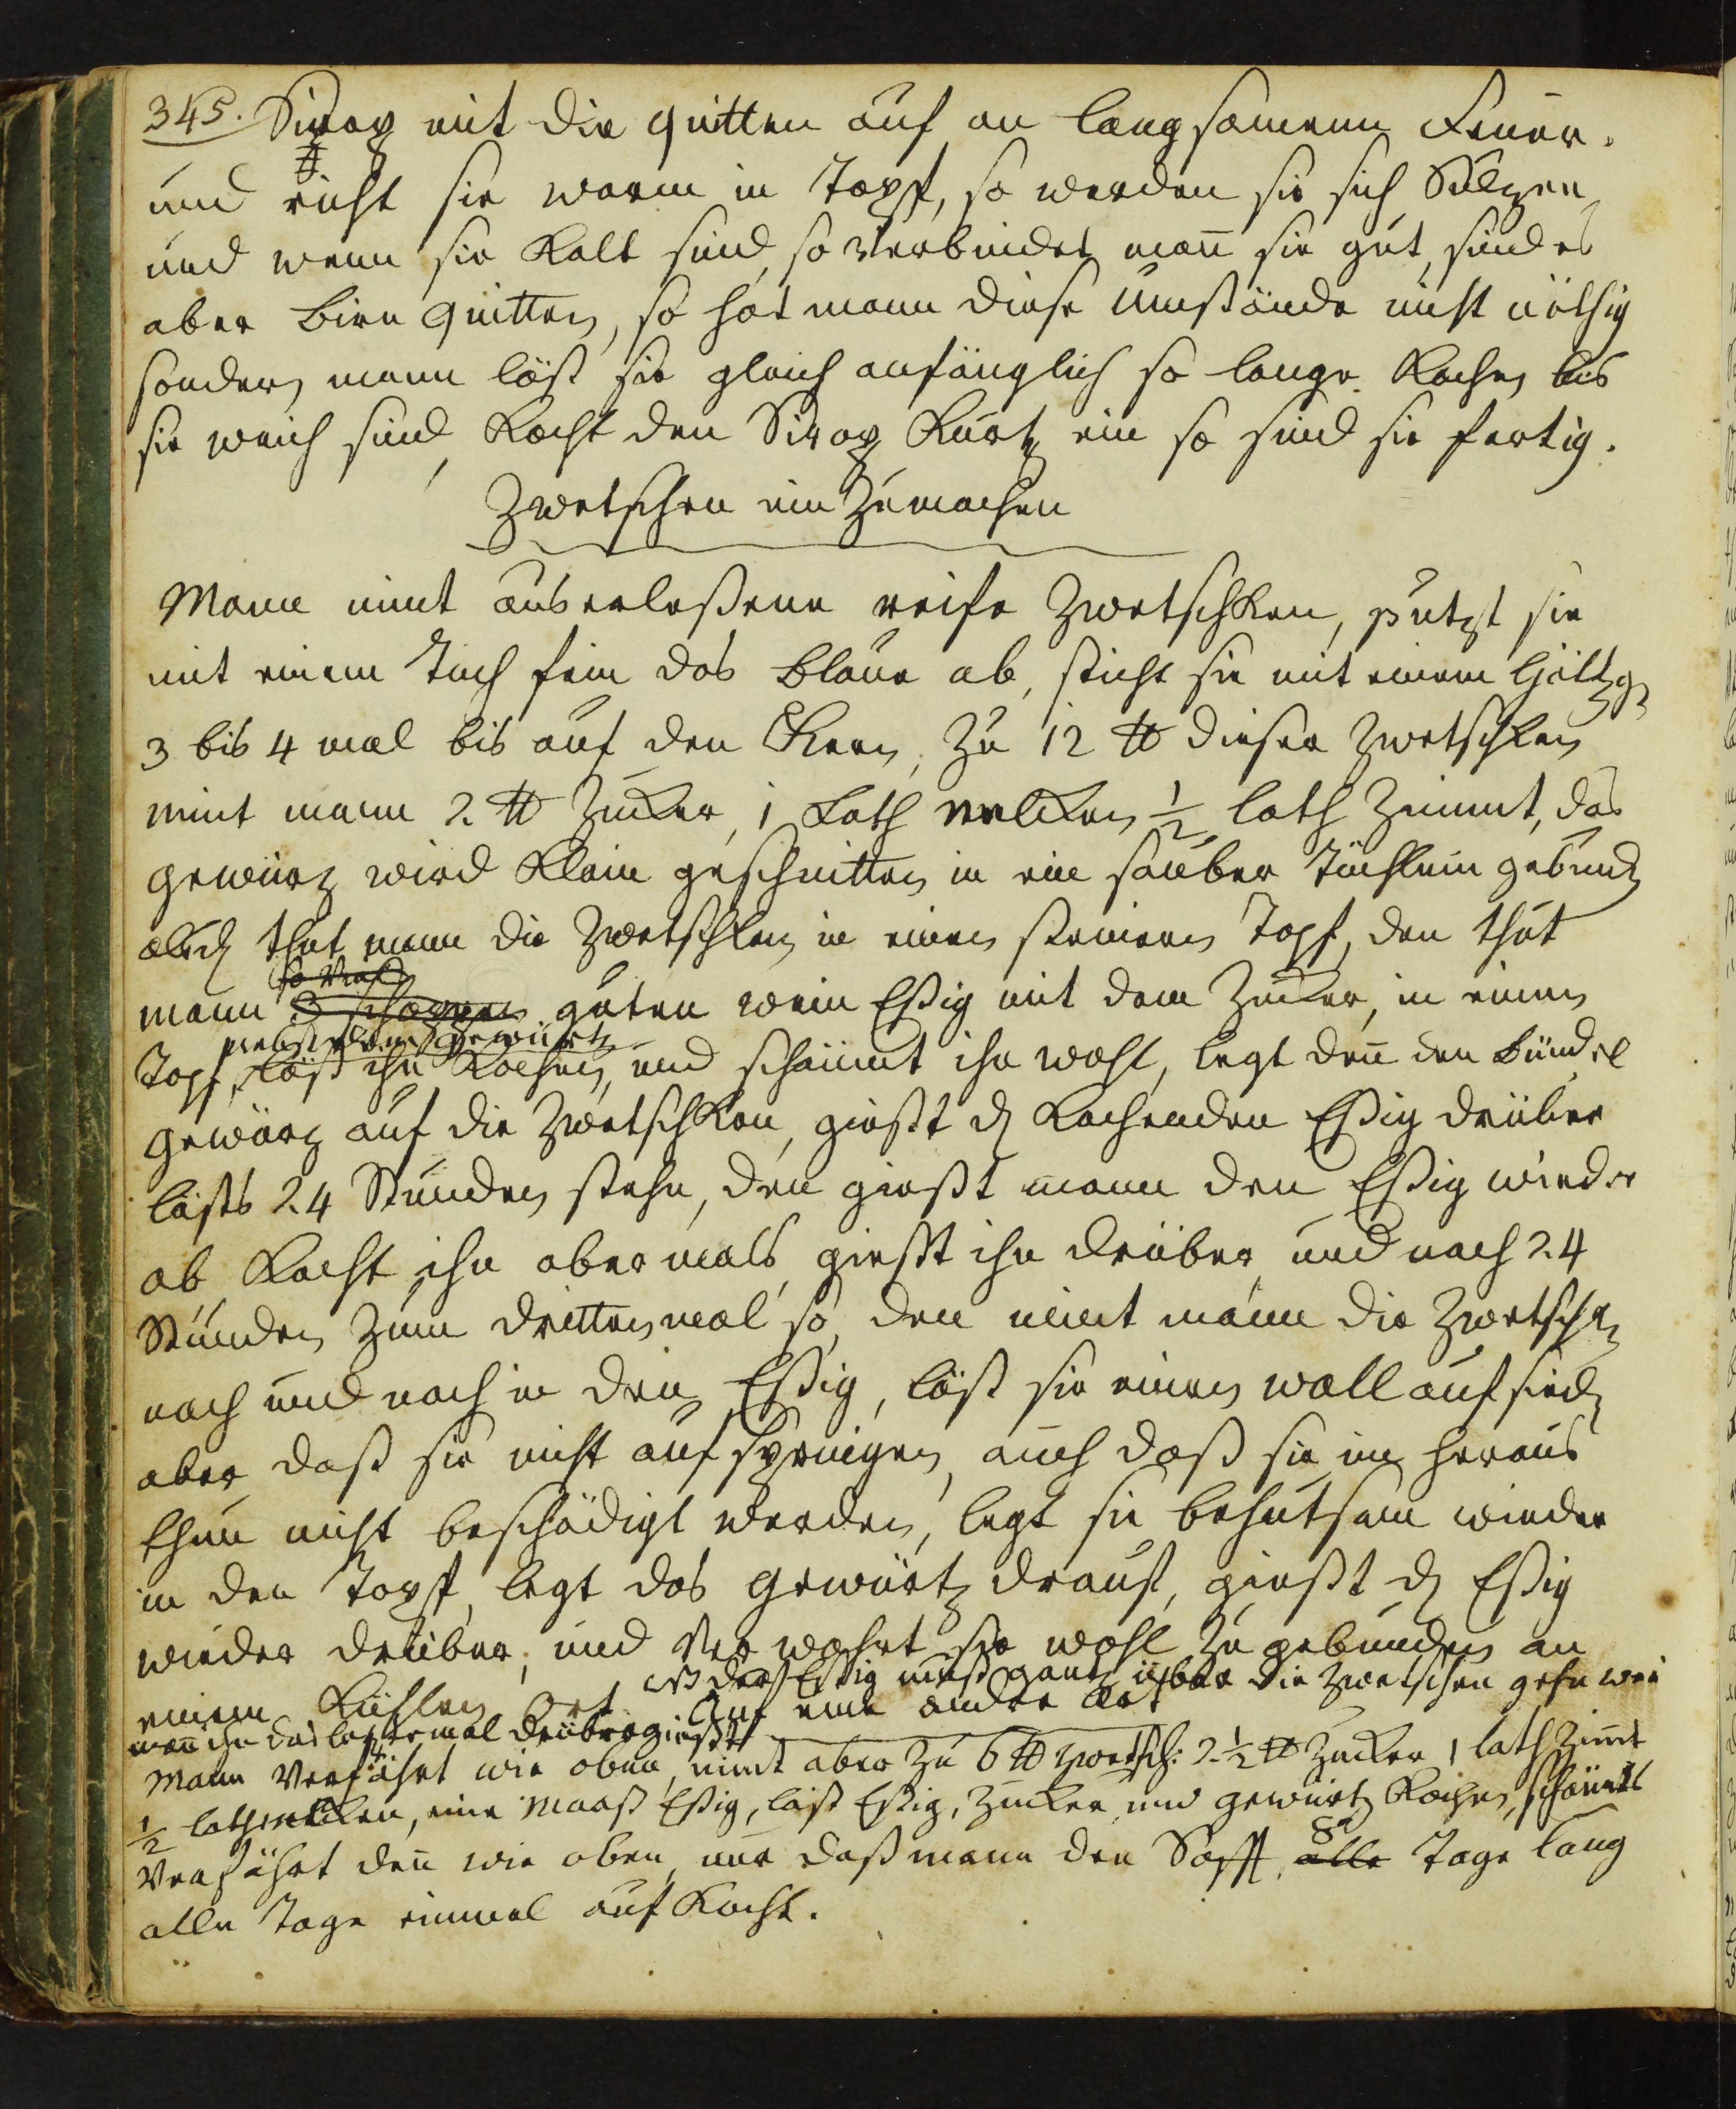 345. Sirop mit die quitten auf an langsamem Feüer.
und richt sie warm in Topff, so werden sie sich Sülzen
und wenn sie Kalt sind, so Verbindet man̄ sie gut, sind es
aber Birn quitten, so hat mann diese Umstände nicht nöthig
sondern mann läst sie gleich anfänglich so lange Kochen bis
sie weich sind, Kocht den Sirop Kurtz ein so sind sie fertig.
Zwetschen ein Zumachen
Mann nimt auserleßene reife Zwetschken, putzt sie
mit einem Tuch fein das blaue ab, sticht sie mit einem
3 bis 4 mal bis auf den Kern, Zu 12 ℔ dieser Zwetschken
nimt mann 2 ℔ Zucker, 1 Loth nelcken ½ loth Zimmt, das
gewürz wird Klein geschnitten in ein sauber Tüchlein gebund
thut mann die Zwetschken in einen steinern Topf, den thut
mann 3 schoppen guten wein Eßig mit dem Zucker, in einen
nebst dem gewürtz
Topf, läst ihn Kochen, und schäumt ihn wohl, legt den̄ den bündel
gewürz auf die Zwetschken, giest d Kochenden Eßig drüber
lästs 24 Stunden stehn, den giest mann den Eßig wieder
ab Kocht ihn abermals, giest ihn drüber, und nach 24
Stunden Zum drittenmal so, den nimt mann die Zwetschk
nach und nach in den Eßig, läst sie einen wall auf sied
aber daß sie nicht aufspringen, auch daß sie im heraus
thun nicht beschädigt werden, legt sie behutsam wieder
in den Topff, legt das gewürtz drauf, giest d Eßig
wieder drüber, und Verwahrt sie wohl zu gebunden an
einem Kühlen Ort. NB der Eßig muß gantz über die Zwetschen gehn wen̄
man̄ ihn das letztemal drüber giest
Auf eine andre Art
Mann Verfährt wie oben, nimt aber Zu 6 ℔ Zwetsch: 2½ ℔ Zucker 1 loth Zimt
½ loth nelcken, eine Maaß Eßig, läst Eßig, Zucker und gewürtz Kochen, schäumts
Verfährt den̄ wie oben, nur daß mann den Safft, alle 8 Tage lang
alle Tage einmal auf Kocht.